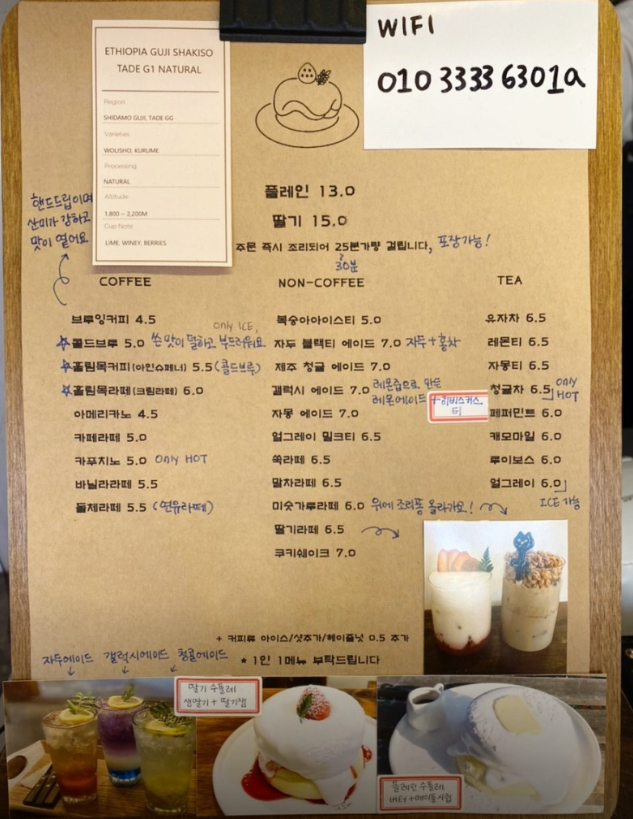 WIFI
010 3333 6301a
ETHIOPIA GUJI SHAKISO
TADE G1 NATURAL
Region
SHIDAMO GUJI, TADE GG
Varieties
WOLISHO, KURUME
Processing
NATURAL
Altitude
1,800 – 2,200M
Cup Note
LIME, WINEY, BERRIES
핸드드립이며
산미가 강하고
맛이 옅어요
플레인 13.0
딸기 15.0
주문 즉시 조리되어 25분가량 걸립니다, 포장가능!
30분
COFFEE
브루잉커피 4.5
only ICE,
콜드브루 5.0 쓴 맛이 덜하고 부드러워요
홀림목커피(아인슈페너) 5.5 (콜드브루)
홀림목라떼(크림라떼) 6.0
아메리카노 4.5
카페라떼 5.0
카푸치노 5.0 only HOT
바닐라라떼 5.5
돌체라떼 5.5 (연유라떼)
NON-COFFEE
복숭아아이스티 5.0
자두 블랙티 에이드 7.0 자두+홍차
제주 청귤 에이드 7.0
갤럭시 에이드 7.0 레몬즙으로 만든
레몬에이드 + 히비스커스
티
자몽 에이드 7.0
얼그레이 밀크티 6.5
쑥라떼 6.5
말차라떼 6.5
미숫가루라떼 6.0 위에 조리퐁 올라가요!
딸기라떼 6.5
쿠키쉐이크 7.0
TEA
유자차 6.5
레몬티 6.5
자몽티 6.5
청귤차 6.5 only
HOT
페퍼민트 6.0
캐모마일 6.0
루이보스 6.0
얼그레이 6.0
ICE 가능
+ 커피류 아이스/샷추가/헤이즐넛 0.5 추가
★ 1인 1메뉴 부탁드립니다
자두에이드 갤럭시에이드 청귤에이드
딸기 수플레
생딸기 + 딸기잼
플레인 수플레
버터+메이플시럽